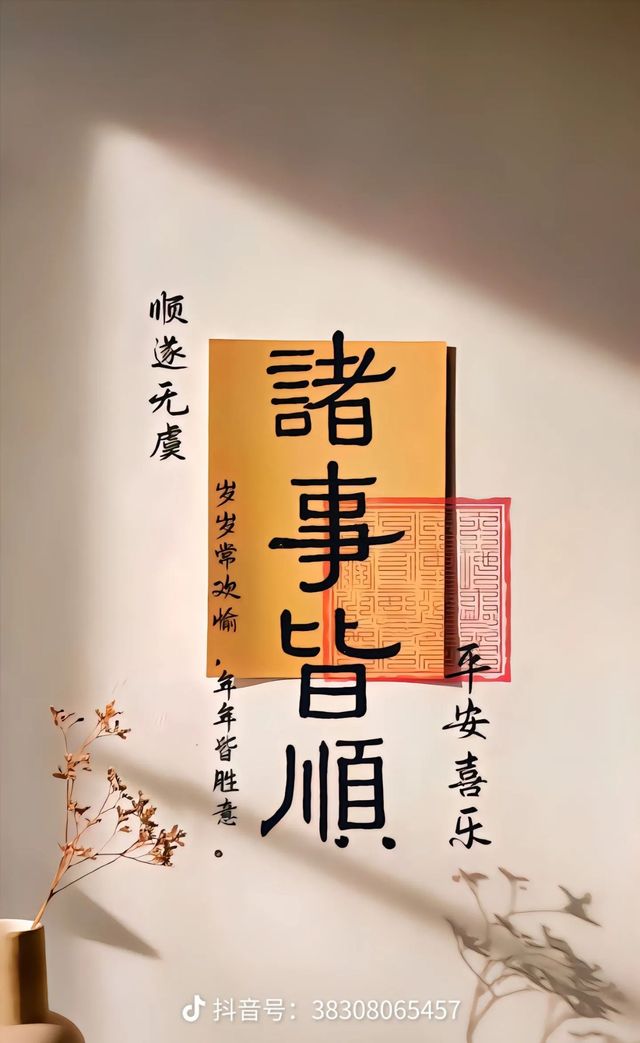 諸事皆順
顺遂无虞
岁岁常欢愉，年年皆胜意。
平安喜乐
抖音号：38308065457